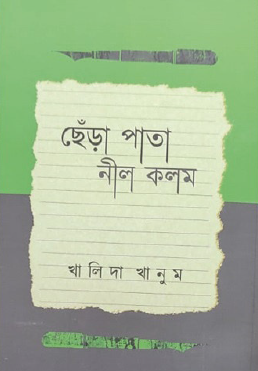 ছেঁড়া পাতা
নীল কলম
খালিদা খানুম